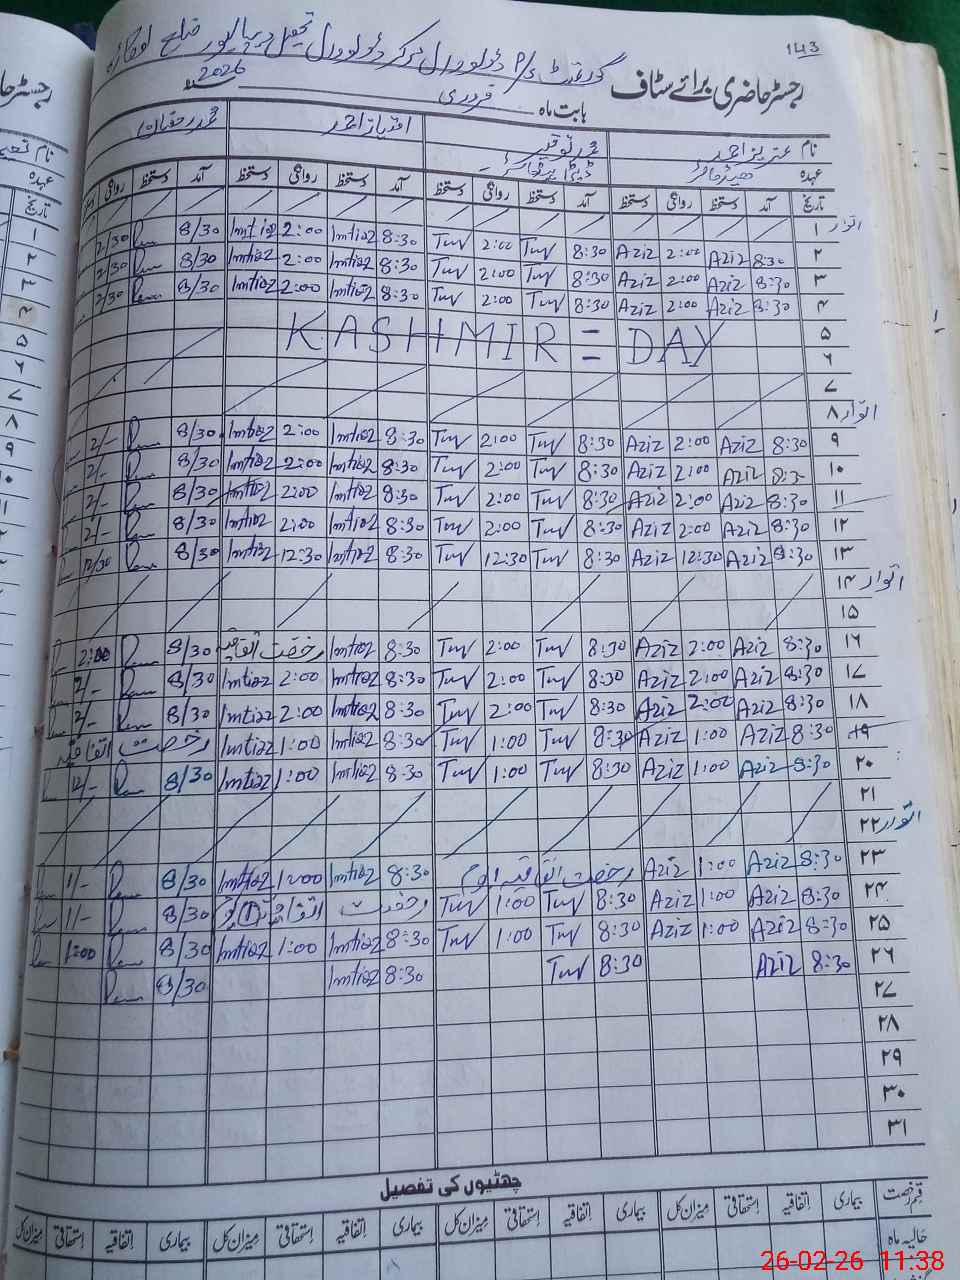 143
گورنمنٹ P/S ڈولو وڈل مرکز ڈولو وڈل تحصیل دیپالپور ضلع اوکاڑہ
رجسٹر حاضری برائے سٹاف
بابت ماہ فروری 2026
نام عزیز احمد محمد توقیر امتیاز احمد محمد رحمان
عہدہ
تاریخ آمد دستخط روانگی دستخط آمد دستخط روانگی دستخط آمد دستخط روانگی دستخط آمد دستخط روانگی
۱ اتوار
۲ 8:30 Aziz 2:00 Aziz 8:30 Tuv 2:00 Tuv 8:30 Imtiaz 2:00 Imtiaz 8/30 2/30
۳ 8:30 Aziz 2:00 Aziz 8:30 Tuv 2:00 Tuv 8:30 Imtiaz 2:00 Imtiaz 8/30 2/30
۴ 8:30 Aziz 2:00 Aziz 8:30 Tuv 2:00 Tuv 8:30 Imtiaz 2:00 Imtiaz 8/30 2/30
۵ KASHMIR = DAY
۶
۷
۸ اتوار
۹ 8:30 Aziz 2:00 Aziz 8:30 Tuv 2:00 Tuv 8:30 Imtiaz 2:00 Imtiaz 8/30 2/-
۱۰ 8:30 Aziz 2:00 Aziz 8:30 Tuv 2:00 Tuv 8:30 Imtiaz 2:00 Imtiaz 8/30 2/-
۱۱ 8:30 Aziz 2:00 Aziz 8:30 Tuv 2:00 Tuv 8:30 Imtiaz 2:00 Imtiaz 8/30 2/-
۱۲ 8:30 Aziz 2:00 Aziz 8:30 Tuv 2:00 Tuv 8:30 Imtiaz 2:00 Imtiaz 8/30 2/-
۱۳ 8:30 Aziz 12:30 Aziz 8:30 Tuv 12:30 Tuv 8:30 Imtiaz 12:30 Imtiaz 8/30 12/30
۱۴ اتوار
۱۵
۱۶ 8:30 Aziz 2:00 Aziz 8:30 Tuv 2:00 Tuv 8:30 Imtiaz رخصت اتفاقیہ 8/30 2:00
۱۷ 8:30 Aziz 2:00 Aziz 8:30 Tuv 2:00 Tuv 8:30 Imtiaz 2:00 Imtiaz 8/30 2/-
۱۸ 8:30 Aziz 2:00 Aziz 8:30 Tuv 2:00 Tuv 8:30 Imtiaz 2:00 Imtiaz 8/30 2/-
۱۹ 8:30 Aziz 1:00 Aziz 8:30 Tuv 1:00 Tuv 8:30 Imtiaz 1:00 Imtiaz رخصت اتفاقیہ
۲۰ 8:30 Aziz 1:00 Aziz 8:30 Tuv 1:00 Tuv 8:30 Imtiaz 1:00 Imtiaz 8/30 12/-
۲۱
۲۲ اتوار
۲۳ 8:30 Aziz 1:00 Aziz رخصت اتفاقیہ 8:30 Imtiaz 1:00 Imtiaz 8/30 1/-
۲۴ 8:30 Aziz 1:00 Aziz 8:30 Tuv 1:00 Tuv رخصت اتفاقیہ 8/30 1/-
۲۵ 8:30 Aziz 1:00 Aziz 8:30 Tuv 1:00 Tuv 8:30 Imtiaz 1:00 Imtiaz 8/30 1:00
۲۶ 8:30 Aziz 8:30 Tuv 8:30 Imtiaz 8/30
۲۷
۲۸
۲۹
۳۰
۳۱
چھٹیوں کی تفصیل
قسم رخصت بیماری اتفاقیہ استحقاقی میزان کل بیماری اتفاقیہ استحقاقی میزان کل بیماری اتفاقیہ استحقاقی میزان کل بیماری اتفاقیہ استحقاقی میزان کل
حالیہ ماہ
26-02-26 11:38